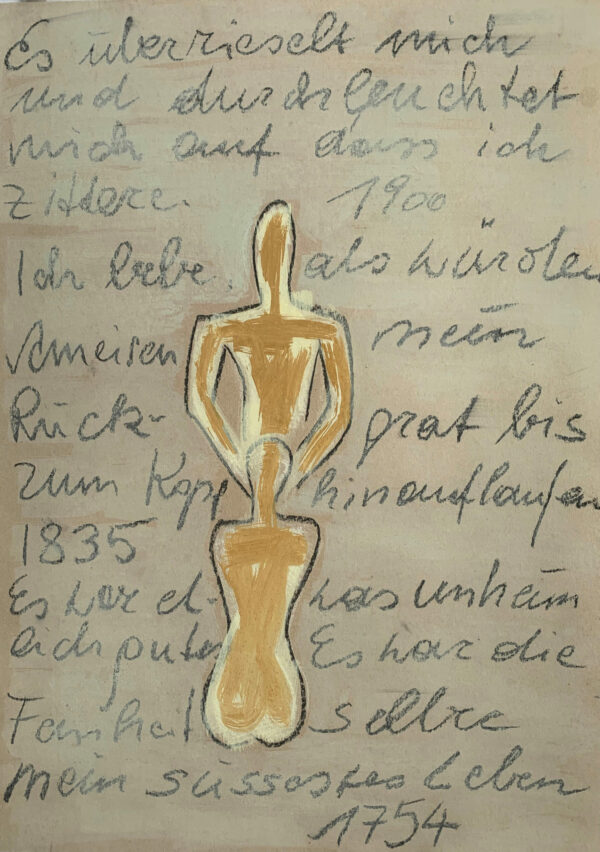 Es überrieselt mich
und durchleuchtet
mich auf dass ich
zittere. 1900
Ich bebe, als würden
Ameisen mein
Rück- grat bis
zum Kopf hinauflaufen
1835
Es war et- was unheim
lich gutes Es war die
Feinheit
mein süssestes Leben
1754